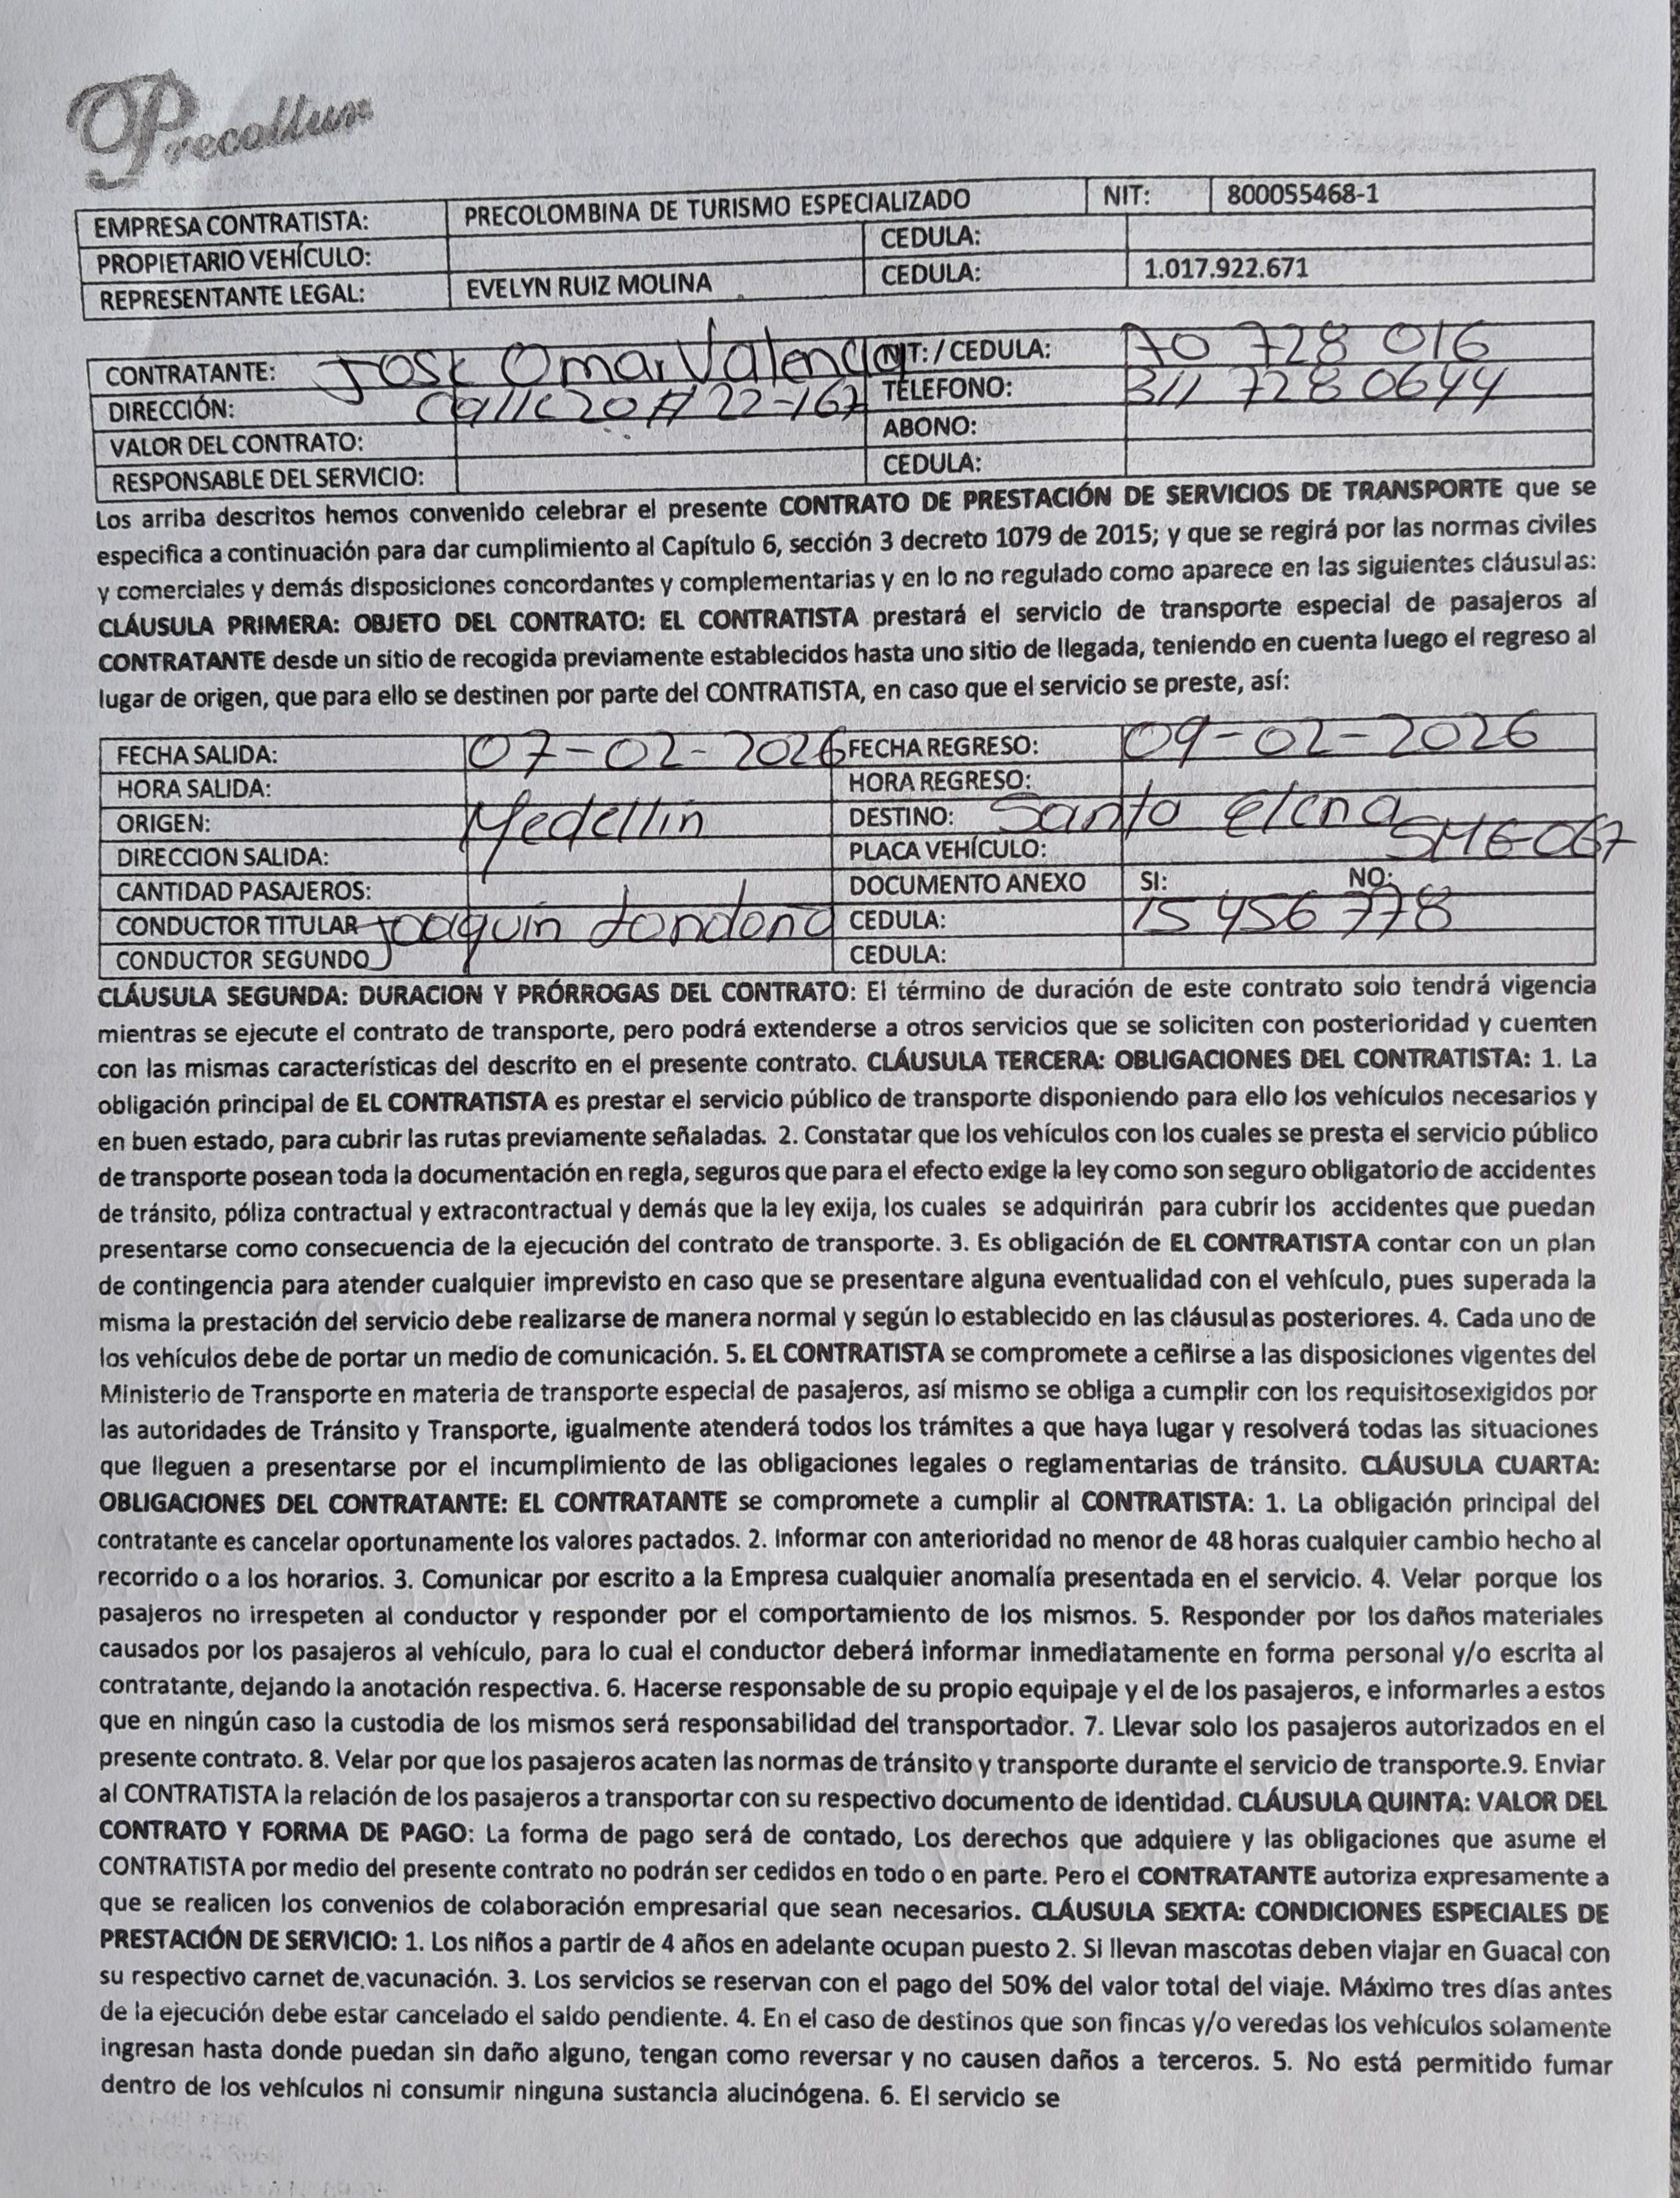 Precoltur
EMPRESA CONTRATISTA: PRECOLOMBINA DE TURISMO ESPECIALIZADO NIT: 800055468-1
PROPIETARIO VEHÍCULO: CEDULA:
REPRESENTANTE LEGAL: EVELYN RUIZ MOLINA CEDULA: 1.017.922.671
CONTRATANTE: Jose Omar Valencia NIT: / CEDULA: 70 728 016
DIRECCIÓN: Calle 20 # 22-167 TÉLEFONO: 311 728 0644
VALOR DEL CONTRATO: ABONO:
RESPONSABLE DEL SERVICIO: CEDULA:
Los arriba descritos hemos convenido celebrar el presente CONTRATO DE PRESTACIÓN DE SERVICIOS DE TRANSPORTE que se
especifica a continuación para dar cumplimiento al Capítulo 6, sección 3 decreto 1079 de 2015; y que se regirá por las normas civiles
y comerciales y demás disposiciones concordantes y complementarias y en lo no regulado como aparece en las siguientes cláusulas:
CLÁUSULA PRIMERA: OBJETO DEL CONTRATO: EL CONTRATISTA prestará el servicio de transporte especial de pasajeros al
CONTRATANTE desde un sitio de recogida previamente establecidos hasta uno sitio de llegada, teniendo en cuenta luego el regreso al
lugar de origen, que para ello se destinen por parte del CONTRATISTA, en caso que el servicio se preste, así:
FECHA SALIDA: 07-02-2026 FECHA REGRESO: 09-02-2026
HORA SALIDA: HORA REGRESO:
ORIGEN: Medellin DESTINO: Santo Elena
DIRECCION SALIDA: PLACA VEHÍCULO: SMG-067
CANTIDAD PASAJEROS: DOCUMENTO ANEXO SI: NO:
CONDUCTOR TITULAR Joaquin Londono CEDULA: 15 456 778
CONDUCTOR SEGUNDO CEDULA:
CLÁUSULA SEGUNDA: DURACION Y PRÓRROGAS DEL CONTRATO: El término de duración de este contrato solo tendrá vigencia
mientras se ejecute el contrato de transporte, pero podrá extenderse a otros servicios que se soliciten con posterioridad y cuenten
con las mismas características del descrito en el presente contrato. CLÁUSULA TERCERA: OBLIGACIONES DEL CONTRATISTA: 1. La
obligación principal de EL CONTRATISTA es prestar el servicio público de transporte disponiendo para ello los vehículos necesarios y
en buen estado, para cubrir las rutas previamente señaladas. 2. Constatar que los vehículos con los cuales se presta el servicio público
de transporte posean toda la documentación en regla, seguros que para el efecto exige la ley como son seguro obligatorio de accidentes
de tránsito, póliza contractual y extracontractual y demás que la ley exija, los cuales se adquirirán para cubrir los accidentes que puedan
presentarse como consecuencia de la ejecución del contrato de transporte. 3. Es obligación de EL CONTRATISTA contar con un plan
de contingencia para atender cualquier imprevisto en caso que se presentare alguna eventualidad con el vehículo, pues superada la
misma la prestación del servicio debe realizarse de manera normal y según lo establecido en las cláusulas posteriores. 4. Cada uno de
los vehículos debe de portar un medio de comunicación. 5. EL CONTRATISTA se compromete a ceñirse a las disposiciones vigentes del
Ministerio de Transporte en materia de transporte especial de pasajeros, así mismo se obliga a cumplir con los requisitosexigidos por
las autoridades de Tránsito y Transporte, igualmente atenderá todos los trámites a que haya lugar y resolverá todas las situaciones
que lleguen a presentarse por el incumplimiento de las obligaciones legales o reglamentarias de tránsito. CLÁUSULA CUARTA:
OBLIGACIONES DEL CONTRATANTE: EL CONTRATANTE se compromete a cumplir al CONTRATISTA: 1. La obligación principal del
contratante es cancelar oportunamente los valores pactados. 2. Informar con anterioridad no menor de 48 horas cualquier cambio hecho al
recorrido o a los horarios. 3. Comunicar por escrito a la Empresa cualquier anomalía presentada en el servicio. 4. Velar porque los
pasajeros no irrespeten al conductor y responder por el comportamiento de los mismos. 5. Responder por los daños materiales
causados por los pasajeros al vehículo, para lo cual el conductor deberá informar inmediatamente en forma personal y/o escrita al
contratante, dejando la anotación respectiva. 6. Hacerse responsable de su propio equipaje y el de los pasajeros, e informarles a estos
que en ningún caso la custodia de los mismos será responsabilidad del transportador. 7. Llevar solo los pasajeros autorizados en el
presente contrato. 8. Velar por que los pasajeros acaten las normas de tránsito y transporte durante el servicio de transporte.9. Enviar
al CONTRATISTA la relación de los pasajeros a transportar con su respectivo documento de identidad. CLÁUSULA QUINTA: VALOR DEL
CONTRATO Y FORMA DE PAGO: La forma de pago será de contado, Los derechos que adquiere y las obligaciones que asume el
CONTRATISTA por medio del presente contrato no podrán ser cedidos en todo o en parte. Pero el CONTRATANTE autoriza expresamente a
que se realicen los convenios de colaboración empresarial que sean necesarios. CLÁUSULA SEXTA: CONDICIONES ESPECIALES DE
PRESTACIÓN DE SERVICIO: 1. Los niños a partir de 4 años en adelante ocupan puesto 2. Si llevan mascotas deben viajar en Guacal con
su respectivo carnet de vacunación. 3. Los servicios se reservan con el pago del 50% del valor total del viaje. Máximo tres días antes
de la ejecución debe estar cancelado el saldo pendiente. 4. En el caso de destinos que son fincas y/o veredas los vehículos solamente
ingresan hasta donde puedan sin daño alguno, tengan como reversar y no causen daños a terceros. 5. No está permitido fumar
dentro de los vehículos ni consumir ninguna sustancia alucinógena. 6. El servicio se